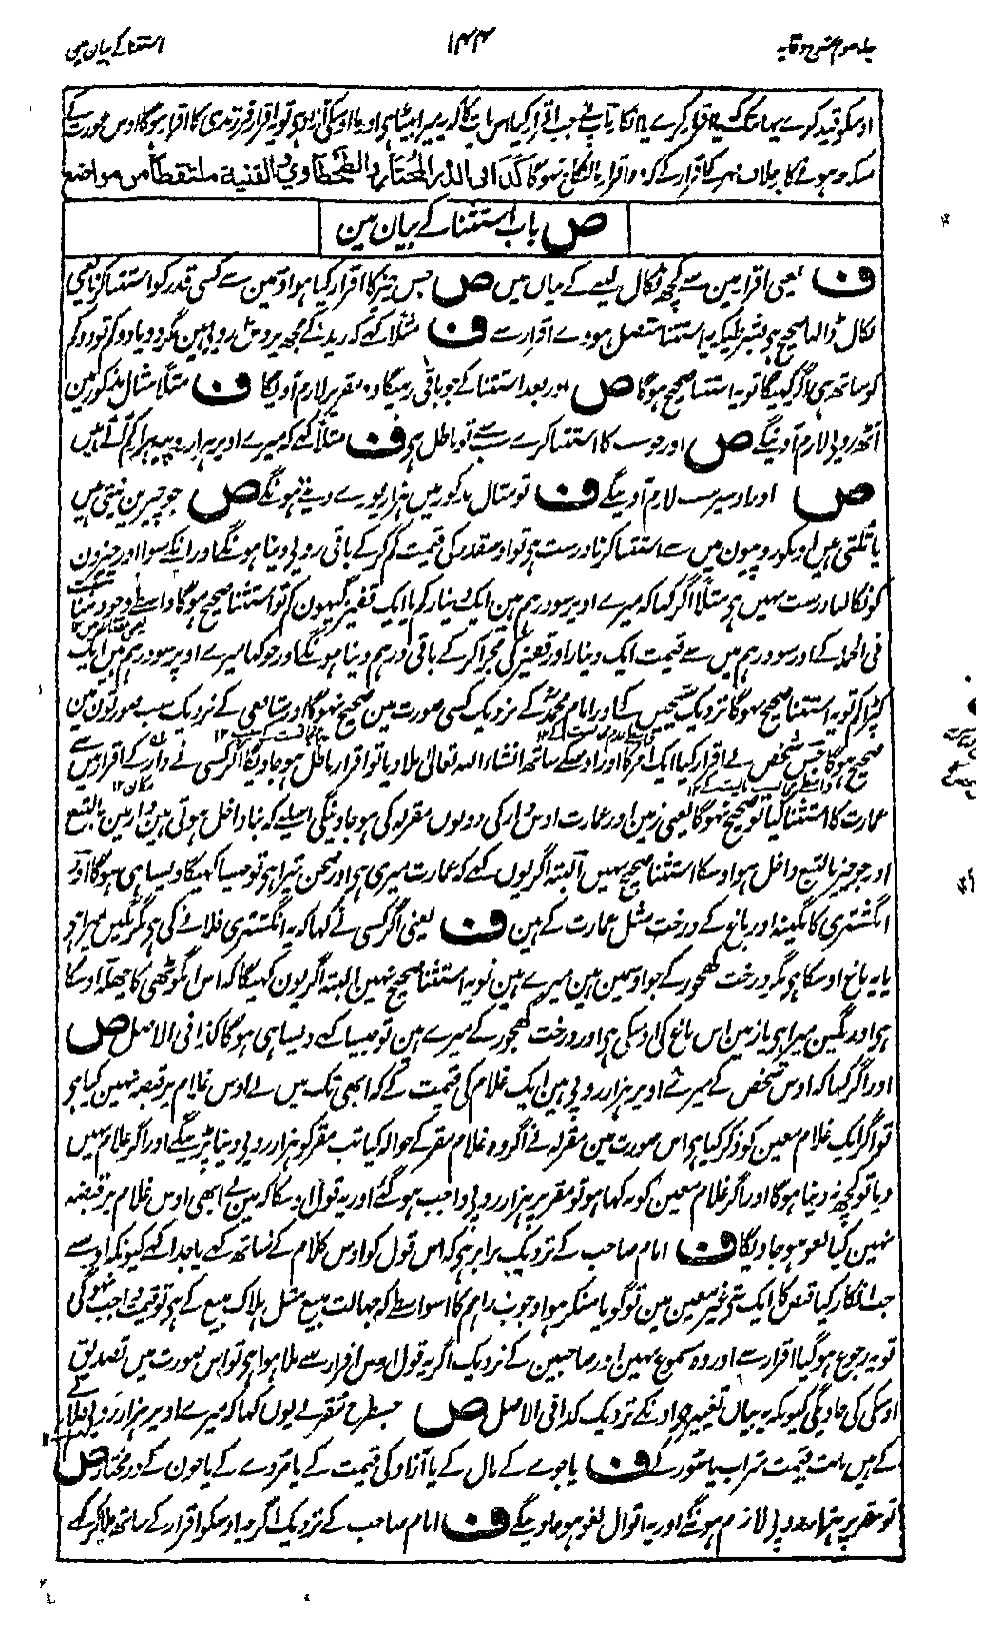 جلد سوم شرح وقایہ ۱۴۴ استثنا کے بیان مین
اوسکو قید کرے یہانتک کہ اقرار کرے یا انکار باپ نے جب اقرار کیا اس بات کا کہ یہ میرا بیٹا ہی اور ماں اوسکی آزاد ہی تو یہ اقرار فرزندی کا اقرار ہوگا اوس عورت کے
منکوحہ ہونے کا بخلاف مہر کے اقرار کے کہ وہ اقرار بالنکاح نہوگا کذا فی الدر المختار والطحطاوی والقنیة ملتقطا من مواضع
ص باب استثنا کے بیان مین
ف یعنی اقرار مین سے کچھ نکال لینے کے بیان میں ص جس چیز کا اقرار کیا ہو اوسمین سے کسی قدر کو استثنا کرنا یعنی
نکال ڈالنا صحیح ہی بشرطیکہ یہ استثنا متصل ہووے اقرار سے ف مثلا کہے کہ زید کے مجھ پر دس روپی ہین مگر دو یا دو کم تو دو کم
کو ساتھ ہی اگر کہیگا تو یہ استثنا صحیح ہوگا ص اور بعد استثنا کے جو باقی رہیگا وہ مقر پر لازم آویگا ف مثلا مثال مذکور مین
آٹھ روپی لازم آوینگے ص اور جو سب کا استثنا کرے سب سے تو باطل ہی ف مثلا کہے کہ میرے اوپر ہزار روپیہ ہزار کم آتے ہیں
ص اور اوسپر سب لازم آوینگے ف تو مثال مذکور میں ہزار پورے دینے ہونگے ص جو چیزین نپتی ہیں
یا تلتی ہین اونکو روپیون میں سے استثنا کرنا درست ہی تو اوسقدر کی قیمت کم کر کے باقی روپی دینا ہونگے اور انکے سوا اور چیزون
کو نکالنا درست نہیں ہی مثلا اگر کہا کہ میرے اوپر سو درہم ہین ایک دینار کم یا ایک قفیز گیہون کم تو استثنا صحیح ہوگا واسطے وجود مجانست
فی الجملہ کے اور سو درہم میں سے قیمت ایک دینار اور قفیز کی مجرا کر کے باقی درہم دینا ہونگے اور جو کہا میرے اوپر سو درہم ہین ایک
کپڑا کم تو یہ استثنا صحیح نہوگا نزدیک شیخین کے اور امام محمد کے نزدیک کسی صورت مین صحیح نہوگا اور شافعی کے نزدیک سب صورتون مین
صحیح ہوگا جس شخص نے اقرار کیا ایک امر کا اور اوسکے ساتھ انشاء اللہ تعالی ملا دیا تو اقرار باطل ہو جاویگا اگر کسی نے دار کے اقرار میں سے
عمارت کا استثنا کیا تو صحیح نہوگا یعنی زمین اور عمارت اوس دار کی دونوں مقرلہ کی ہو جاوینگی اسلیے کہ بنا داخل ہوتی ہین دار مین بالتبع
اور جو چیز بالتبع داخل ہو اوسکا استثنا صحیح نہیں البتہ اگر یوں کہے کہ عمارت میری ہی اور صحن تیرا ہی تو جیسا کہیگا ویسا ہی ہوگا اور
انگشتری کا نگینہ اور باغ کے درخت مثل عمارت کے ہین ف یعنی اگر کسی نے کہا کہ یہ انگشتری فلانے کی ہی مگر نگین میرا ہی
یا یہ باغ اوسکا ہی مگر درخت کھجور کے جو اوسمین ہین میرے ہین تو یہ استثنا صحیح نہین البتہ اگر یون کہیگا کہ اس انگوٹھی کا چھلّہ اوسکا
ہی اور نگین میرا ہی یا زمین اس باغ کی اوسکی ہی اور درخت کھجور کے میرے ہین تو جیسا کہے ویسا ہی ہوگا کذا فی الاصل ص
اور اگر کہا کہ اوس شخص کے میرے اوپر ہزار روپی ہین ایک غلام کی قیمت کے کہ ابھی تک میں نے اوس غلام پر قبضہ نہین کیا ہی
تو اگر ایک غلام معین کو ذکر کیا ہی اس صورت مین مقرلہ نے اگر وہ غلام مقر کے حوالہ کیا تب مقر کو ہزار روپی دینا پڑینگے اور اگر غلام نہیں
دیا تو کچھ نہ دینا ہوگا اور اگر غلام معین کو نہ کہا ہو تو مقر پر ہزار روپی واجب ہوگئے اور یہ قول اوسکا کہ مین نے ابھی اوس غلام پر قبضہ
نہین کیا لغو ہو جاویگا ف امام صاحب کے نزدیک برابر ہی کہ اس قول کو اوس کلام کے ساتھ کہے یا جدا کہے کیونکہ اوسنے
جب انکار کیا قبض کا ایک شی غیر معین مین تو گویا منکر ہوا وجوب دراہم کا اسواسطے کہ جہالت مبیع مثل ہلاک مبیع کے ہی تو قیمت واجب نہوگی
تو یہ رجوع ہو گیا اقرار سے اور وہ مسموع نہین اور صاحبین کے نزدیک اگر یہ قول اوس اقرار سے ملا ہوا ہی تو اس صورت میں تصدیق
اوسکی کی جاویگی کیونکہ یہ بیان تغییر ہی اونکے نزدیک کذا فی الاصل ص جسطرح مقر نے یوں کہا کہ میرے اوپر ہزار روپی فلانے
کے ہیں بابت قیمت شراب یا سور کے ف یا جوے کے مال کے یا آزاد کی قیمت کے یا مردے کے یا خون کے درمختار ص
تو مقر پر ہزار روپی لازم ہونگے اور یہ اقوال لغو ہو جاوینگے ف امام صاحب کے نزدیک اگرچہ اوسکو اقرار کے ساتھ ملا کر کہے